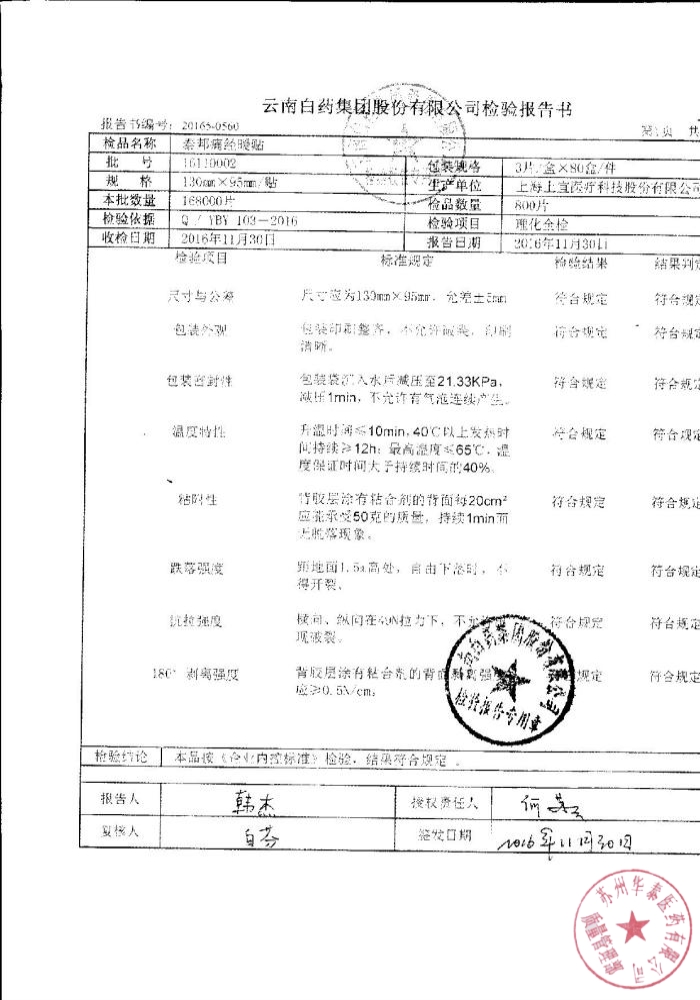 云南白药集团股份有限公司检验报告书
报告书编号: 20165-0560 第1页 共
检品名称 泰邦痛经暖贴
批 号 16110002 包装规格 3片/盒×80盒/件
规 格 130mm×95mm/贴 生产单位 上海上宜医疗科技股份有限公司
本批数量 168000片 检品数量 800片
检验依据 Q / YBY 103-2016 检验项目 理化全检
收检日期 2016年11月30日 报告日期 2016年11月30日
检验项目 标准规定 检验结果 结果判定
尺寸与公差 尺寸应为130mm×95mm, 允差±5mm 符合规定 符合规定
包装外观 包装印刷整齐, 不允许破裂, 印刷 符合规定 符合规定
清晰。
包装密封性 包装袋沉入水后减压至21.33KPa, 符合规定 符合规定
减压1min, 不允许有气泡连续产生。
温度特性 升温时间≤10min, 40℃以上发热时 符合规定 符合规定
间持续≥12h; 最高温度≤65℃, 温
度保证时间大于持续时间的40%。
粘附性 背胶层涂有粘合剂的背面每20cm² 符合规定 符合规定
应能承受50克的质量, 持续1min而
无脱落现象。
跌落强度 距地面1.5m高处, 自由下落时, 不 符合规定 符合规定
得开裂。
抗拉强度 横向、纵向在40N拉力下, 不允 符合规定 符合规定
现破裂。
180° 剥离强度 背胶层涂有粘合剂的背面剥离强 规定 符合规定
应≥0.5N/cm。
云南白药集团股份有限公司
检验报告专用章
检验结论 本品按《企业内控标准》检验, 结果符合规定。
报告人 韩杰 授权责任人 何
复核人 白芬 签发日期 2016年11月30日
苏州华泰医药有限公司
质量管理